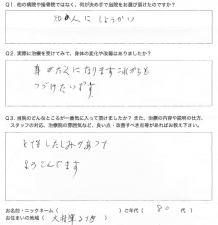 Q1. 他の病院や接骨院ではなく、何が決め手で当院をお選び頂けたのですか？
知人にしょうかい
Q2. 実際に治療を受けてみて、身体の変化や改善はありましたか？
身がたくになりますこれからも
つづけたいです
Q3. 当院のどんなところが一番気に入って頂けましたか？また、治療の内容や説明の仕方、
スタッフの対応、治療院の雰囲気など、良い点・改善すべき点等があればお教え下さい。
とてもしたしみがあって
よろこんでます
お名前・ニックネーム（　　　）ご年代（ 80 代）
お住まいの地域（